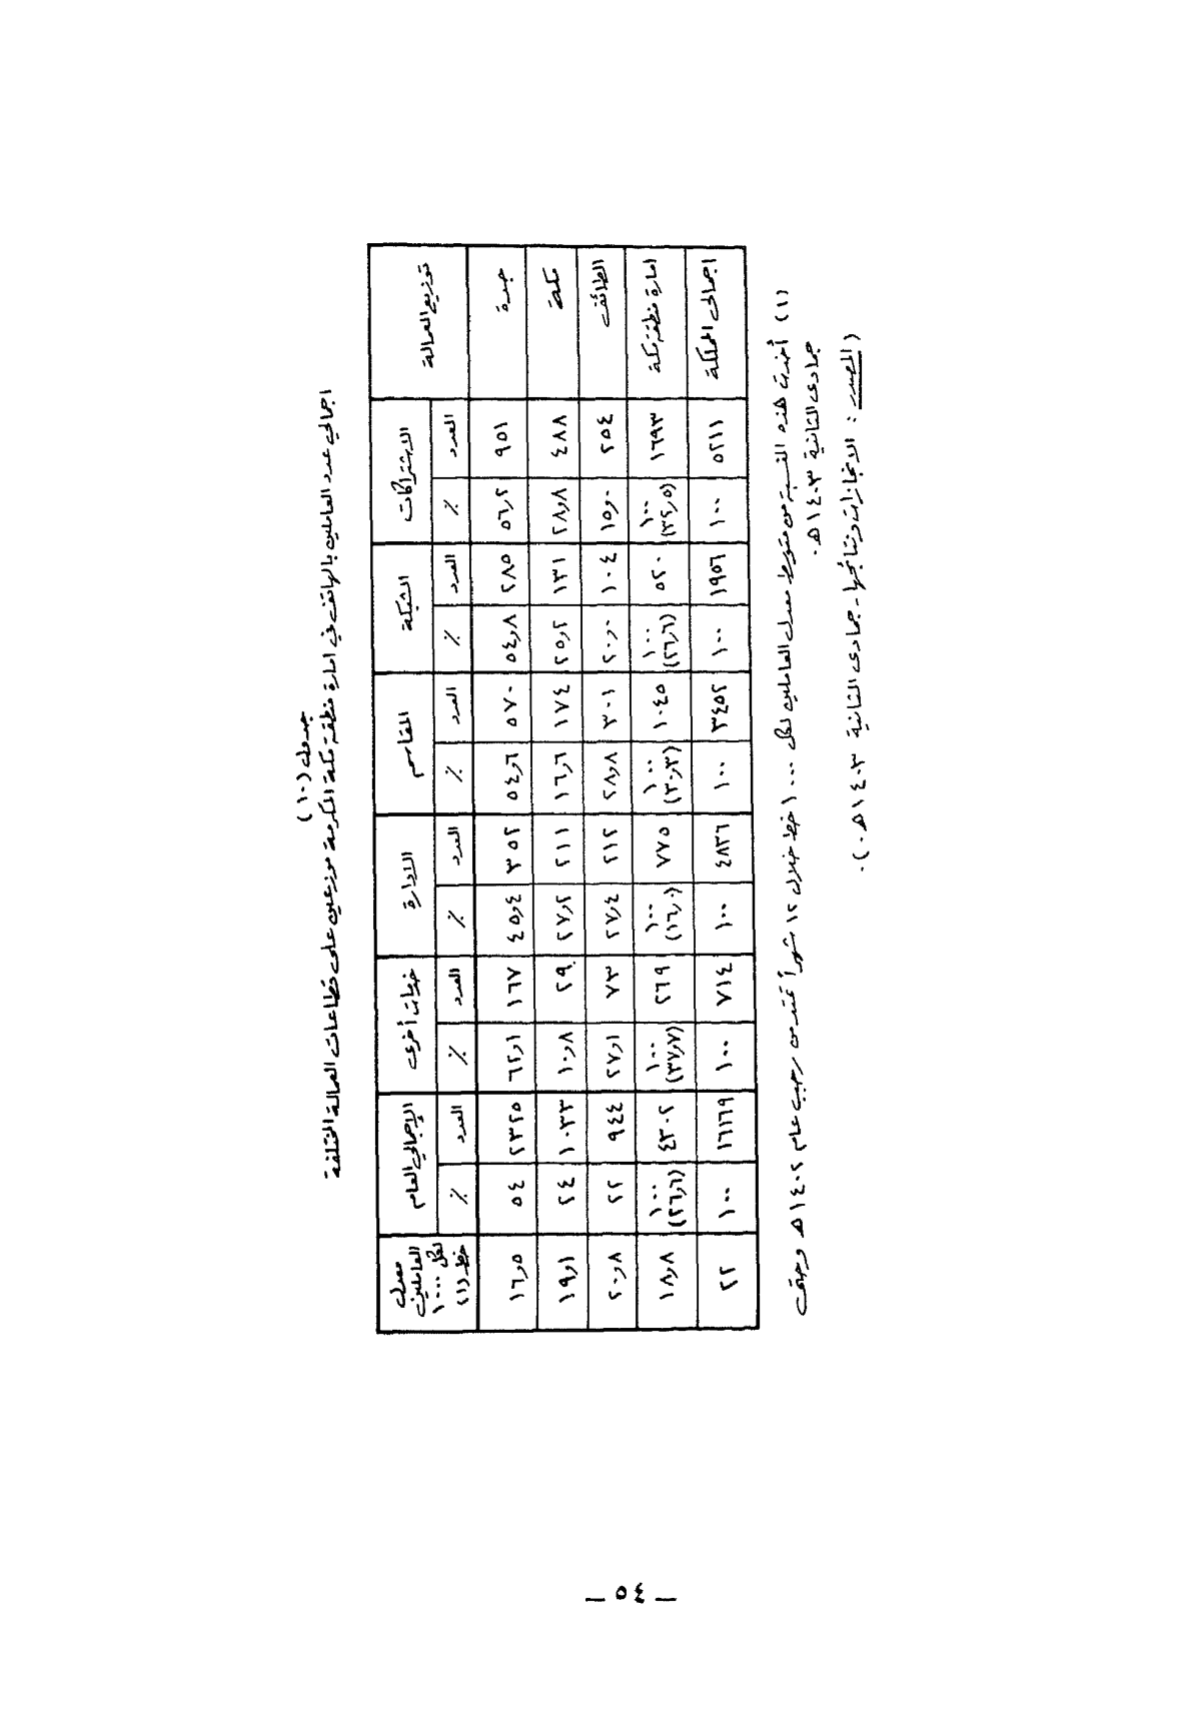 جدول (١٠)
اجمالي عدد العاملين بالهاتف في امارة منطقة مكة المكرمة موزعين على قطاعات العمالة المختلفة
توزيع العمالة | الاشتراكات | الشبكة | المقاسم | الادارة | خدمات أخرى | الإجمالي العام | معدل العاملين لكل ١٠٠٠ خط (١)
العدد | ٪ | العدد | ٪ | العدد | ٪ | العدد | ٪ | العدد | ٪ | العدد | ٪
جدة | ٩٥١ | ٥٦,٢ | ٢٨٥ | ٥٤,٨ | ٥٧٠ | ٥٤,٦ | ٣٥٢ | ٤٥,٤ | ١٦٧ | ٦٢,١ | ٢٣٢٥ | ٥٤ | ١٦,٥
مكة | ٤٨٨ | ٢٨,٨ | ١٣١ | ٢٥,٢ | ١٧٤ | ١٦,٦ | ٢١١ | ٢٧,٢ | ٢٩ | ١٠,٨ | ١٠٣٣ | ٢٤ | ١٩,١
الطائف | ٢٥٤ | ١٥,٠ | ١٠٤ | ٢٠,٠ | ٣٠١ | ٢٨,٨ | ٢١٢ | ٢٧,٤ | ٧٣ | ٢٧,١ | ٩٤٤ | ٢٢ | ٢٠,٨
امارة منطقة مكة | ١٦٩٣ | ١٠٠ (٣٤,٥) | ٥٢٠ | ١٠٠ (٢٦,٦) | ١٠٤٥ | ١٠٠ (٣٠,٣) | ٧٧٥ | ١٠٠ (١٦,٠) | ٢٦٩ | ١٠٠ (٣٧,٧) | ٤٣٠٢ | ١٠٠ (٢٦,٦) | ١٨,٨
اجمالى المملكة | ٥٢١١ | ١٠٠ | ١٩٥٦ | ١٠٠ | ٣٤٥٢ | ١٠٠ | ٤٨٣٦ | ١٠٠ | ٧١٤ | ١٠٠ | ١٦١٦٩ | ١٠٠ | ٢٢
(١) أخذت هذه النسبة من متوسط معدل العاملين لكل ١٠٠٠ خط خلال ١٢ شهراً تمتد من رجب عام ١٤٠٢هـ وحتى
جمادى الثانية ١٤٠٣هـ.
(المصدر : الانجازات ونتائجها - جمادى الثانية ١٤٠٣هـ).
— ٥٤ —